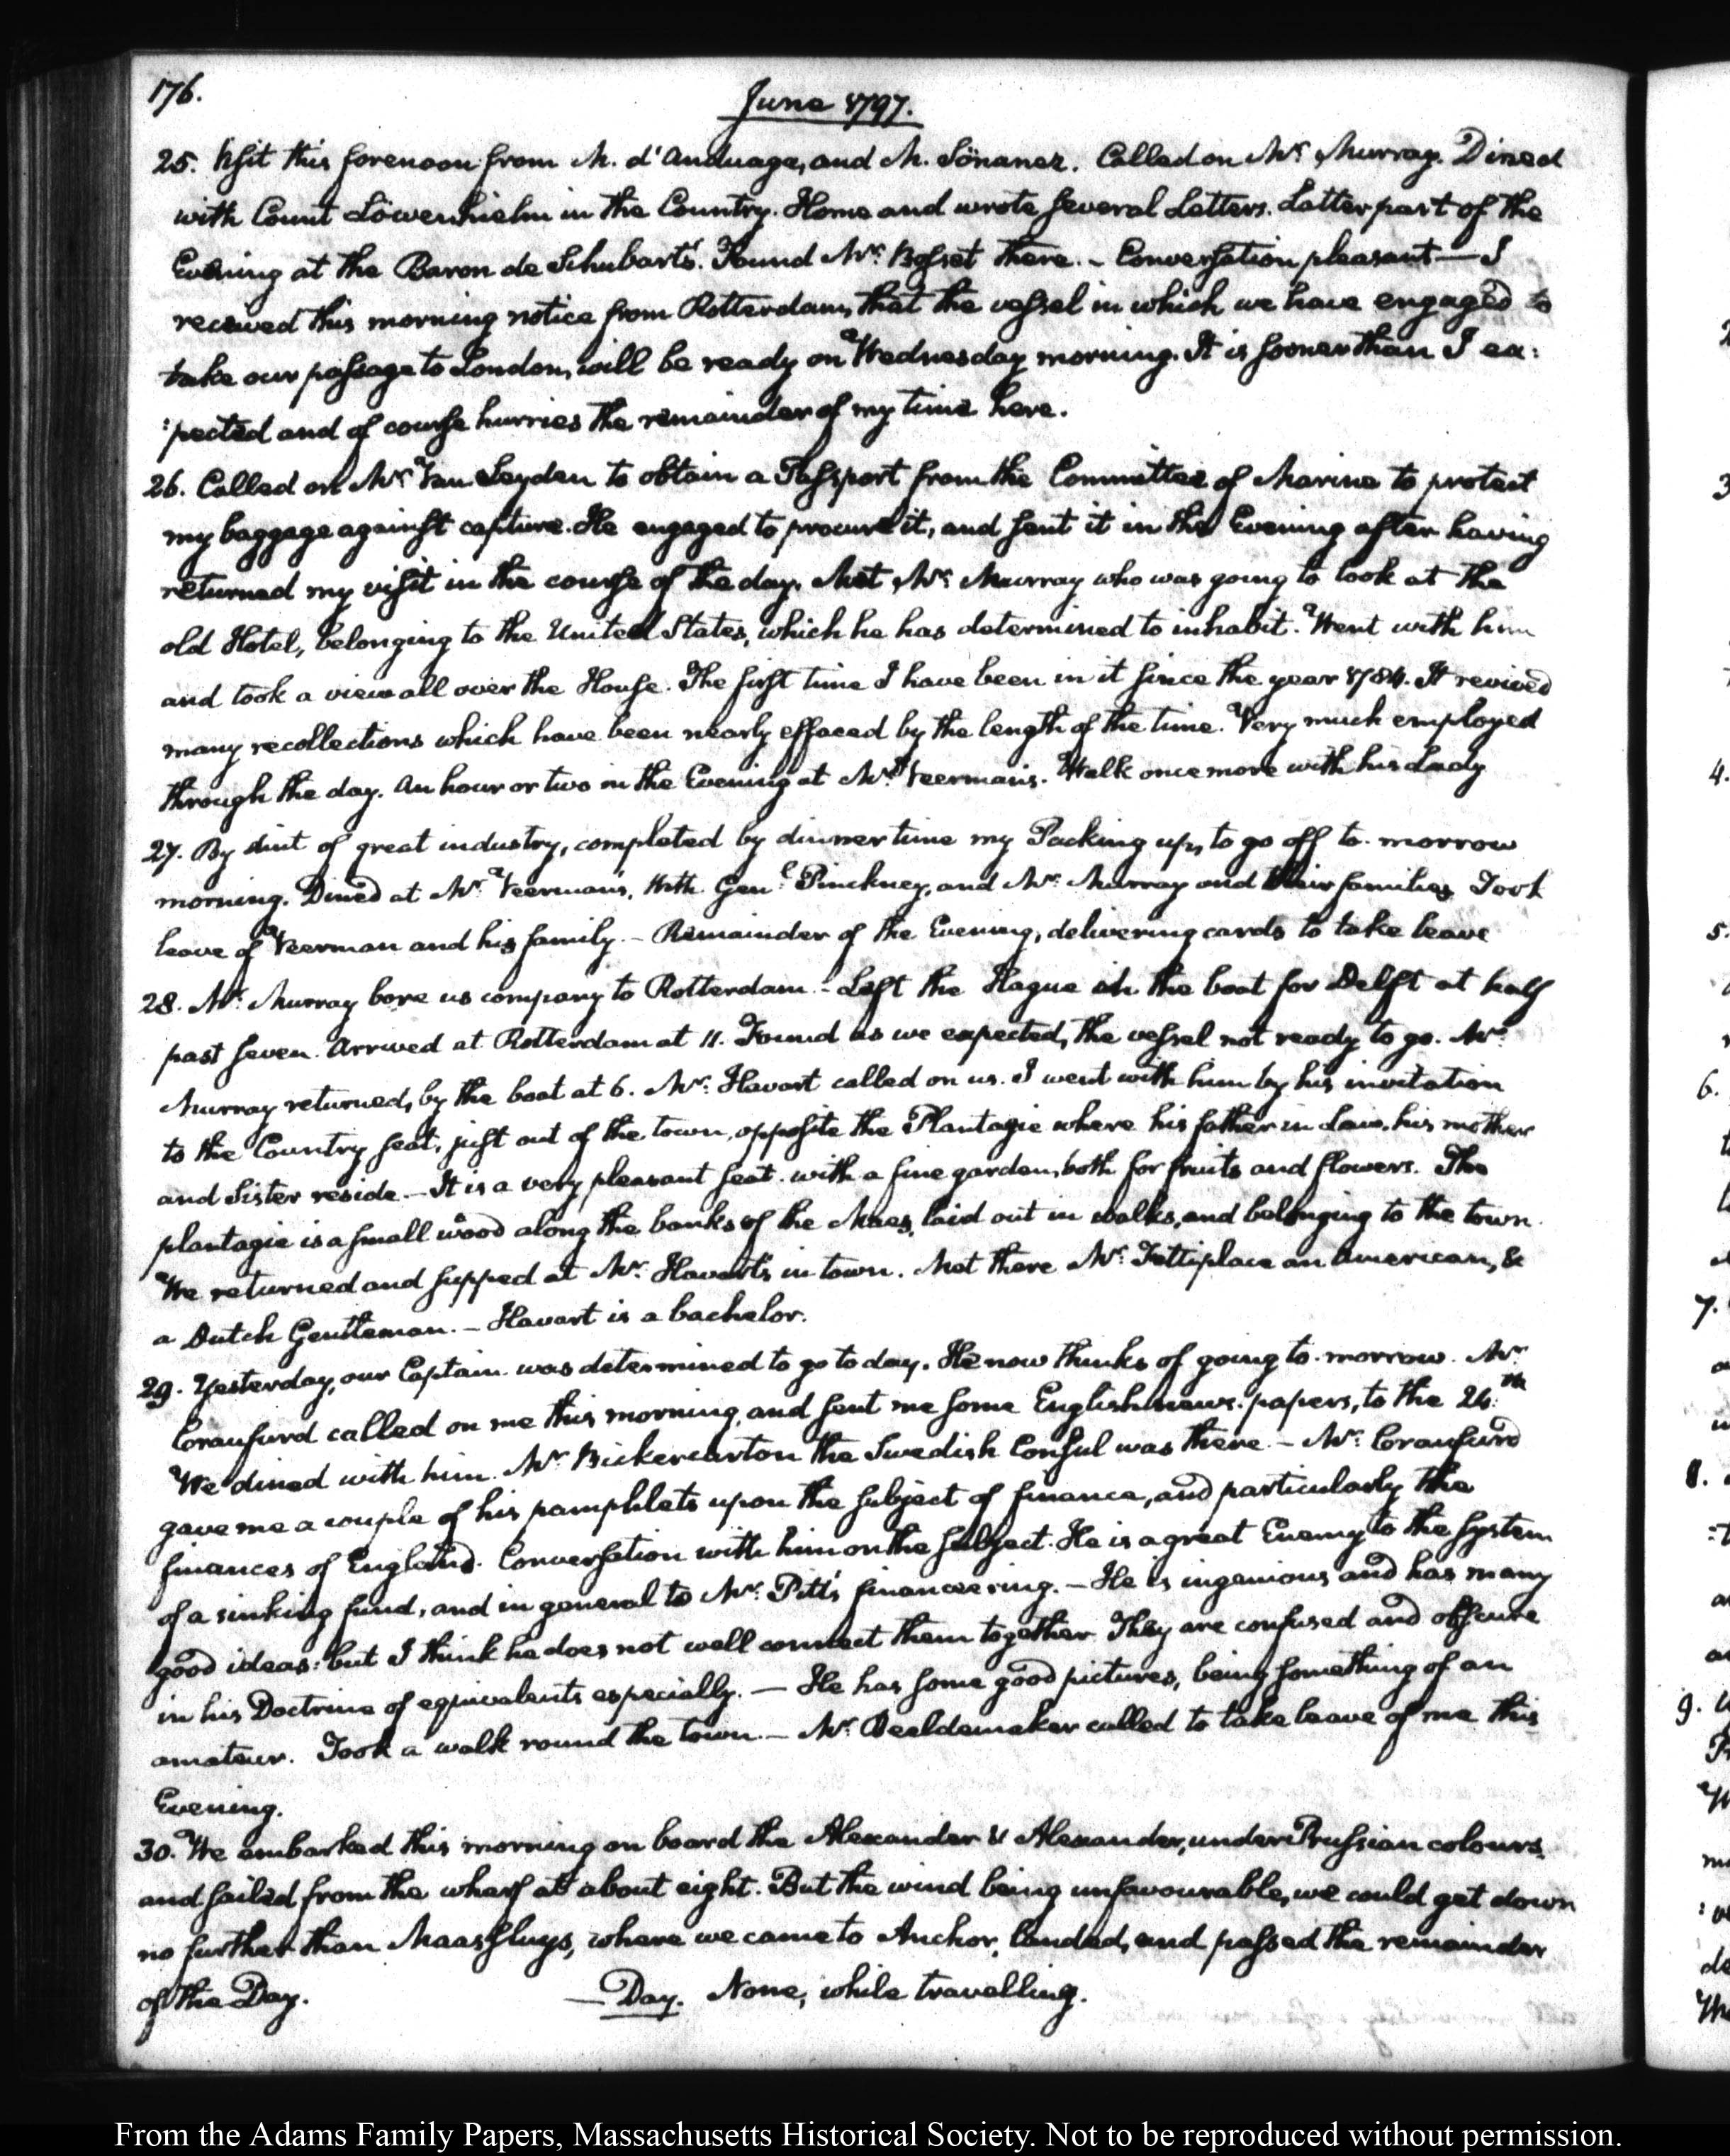 176.
June 1797.
25. Visit this forenoon from M. d'Anduaga, and M. Sönanez. Called on Mr. Murray. Dined
with Count Löwenhielm in the Country. Home and wrote several Letters. Latter part of the
Evening at the Baron de Schubart's. Found Mr. Bosset there. – Conversation pleasant — I
received this morning notice from Rotterdam, that the vessel in which we have engaged to
take our passage to London, will be ready on Wednesday morning. It is sooner than I ex:
:pected and of course hurries the remainder of my time here.
26. Called on Mr. Van Leyden to obtain a Passport from the Committee of Marine to protect
my baggage against capture. He engaged to procure it, and sent it in the Evening after having
returned my visit in the course of the day. Met Mr. Murray who was going to look at the
old Hotel, belonging to the United States, which he has determined to inhabit. Went with him
and took a view all over the House. The first time I have been in it since the year 1784. It revived
many recollections which have been nearly effaced by the length of the time. Very much employed
through the day. An hour or two in the Evening at Mr. Veerman's. Walk once more with his Lady
27. By dint of great industry, completed by dinner time my Packing up, to go off to-morrow
morning. Dined at Mr. Veerman's, with Genl. Pinckney, and Mr. Murray and their families Took
leave of Veerman and his family. – Remainder of the Evening, delivering cards to take leave
28. Mr. Murray bore us company to Rotterdam. – Left the Hague in the boat for Delft at half
past seven. Arrived at Rotterdam at 11. Found as we expected, the vessel not ready to go. Mr.
Murray returned, by the boat at 6. Mr. Havart called on us. I went with him by his invitation
to the Country seat, just out of the town, opposite the Plantagie where his father in law, his mother
and Sister reside. – It is a very pleasant seat. with a fine garden, both for fruits and flowers. The
plantagie is a small wood along the banks of the Maes, laid out in walks, and belonging to the town.
We returned and supped at Mr. Havart's in town. Met there Mr. Fettiplace an American, &
a Dutch Gentleman. – Havart is a bachelor.
29. Yesterday, our Captain was determined to go to day. He now thinks of going to-morrow. Mr.
Craufurd called on me this morning, and sent me some English news-papers, to the 24th.
We dined with him. Mr. Bickerearton the Swedish Consul was there. – Mr. Craufurd
gave me a couple of his pamphlets upon the subject of finance, and particularly the
finances of England. Conversation with him on the subject. He is a great Enemy to the system
of a sinking fund, and in general to Mr. Pitt's financeering. – He is ingenious and has many
good ideas: but I think he does not well connect them together They are confused and obscure
in his Doctrine of equivalents especially. — He has some good pictures, being something of an
amateur. Took a walk round the town. – Mr. Beeldemaker called to take leave of me this
Evening.
30. We embarked this morning on board the Alexander & Alexander, under Prussian colours,
and sailed from the wharf at about eight. But the wind being unfavourable, we could get down
no further than Maassluys, where we came to Anchor, landed, and passed the remainder
of the Day. — Day. None, while travelling.
From the Adams Family Papers, Massachusetts Historical Society. Not to be reproduced without permission.